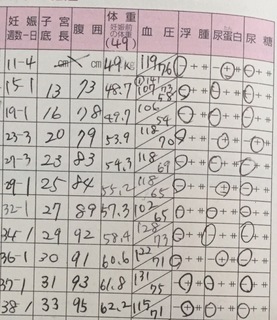 妊娠週数-日 子宮底長 腹囲 体重 妊娠前の体重(49) 血圧 浮腫 尿蛋白 尿糖
11-4 cm cm 49kg 119/76 - + ⧺ - + ⧺ - + ⧺
15-1 13 73 48.7 107/58 - + ⧺ - + ⧺ - + ⧺
19-1 16 78 49.7 /54 - + ⧺ - + ⧺ - + ⧺
23-3 20 79 53.9 118/70 - + ⧺ - + ⧺ - + ⧺
27-3 23 83 54.3 118/69 - + ⧺ - + ⧺ - + ⧺
29-1 25 84 55.2 118/65 - + ⧺ - + ⧺ - + ⧺
32-1 27 89 57.3 102/65 - + ⧺ - + ⧺ - + ⧺
29 92 58.4 128/73 - + ⧺ - + ⧺ - + ⧺
36-1 30 91 60.6 122/71 - + ⧺ - + ⧺ - + ⧺
37-1 31 93 61.8 131/75 - + ⧺ - + ⧺ - + ⧺
38-1 33 95 62.2 115/71 - + ⧺ - + ⧺ - + ⧺